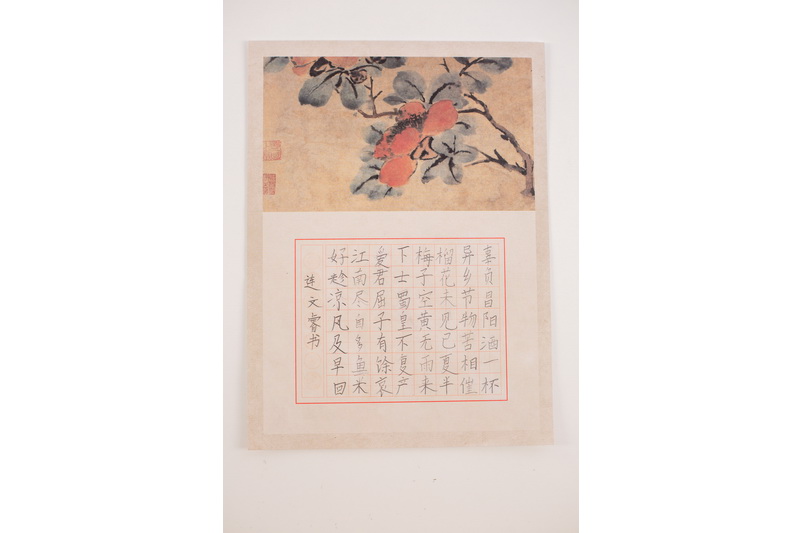 喜贞昌阳酒一杯
异乡节物苦相催
榴花未见已夏半
梅子空黄无雨来
下士蜀皇不复产
爱君屈子有馀哀
江南尽自多鱼米
好趁凉风及早回
连文睿书